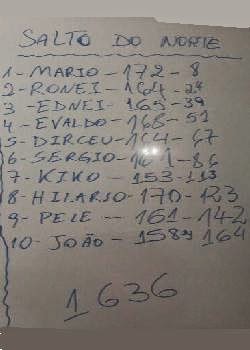 SALTO DO NORTE
1-MARIO-172-8
2-RONEI-164-24
3-EDNEI-165-39
4-EVALDO-168-51
5-DIRCEU-164-67
6-SERGIO-161-86
7-KIKO-153-113
8-HILARIO-170-123
9-PELE-161-142
10-JOÃO-158 164
1636